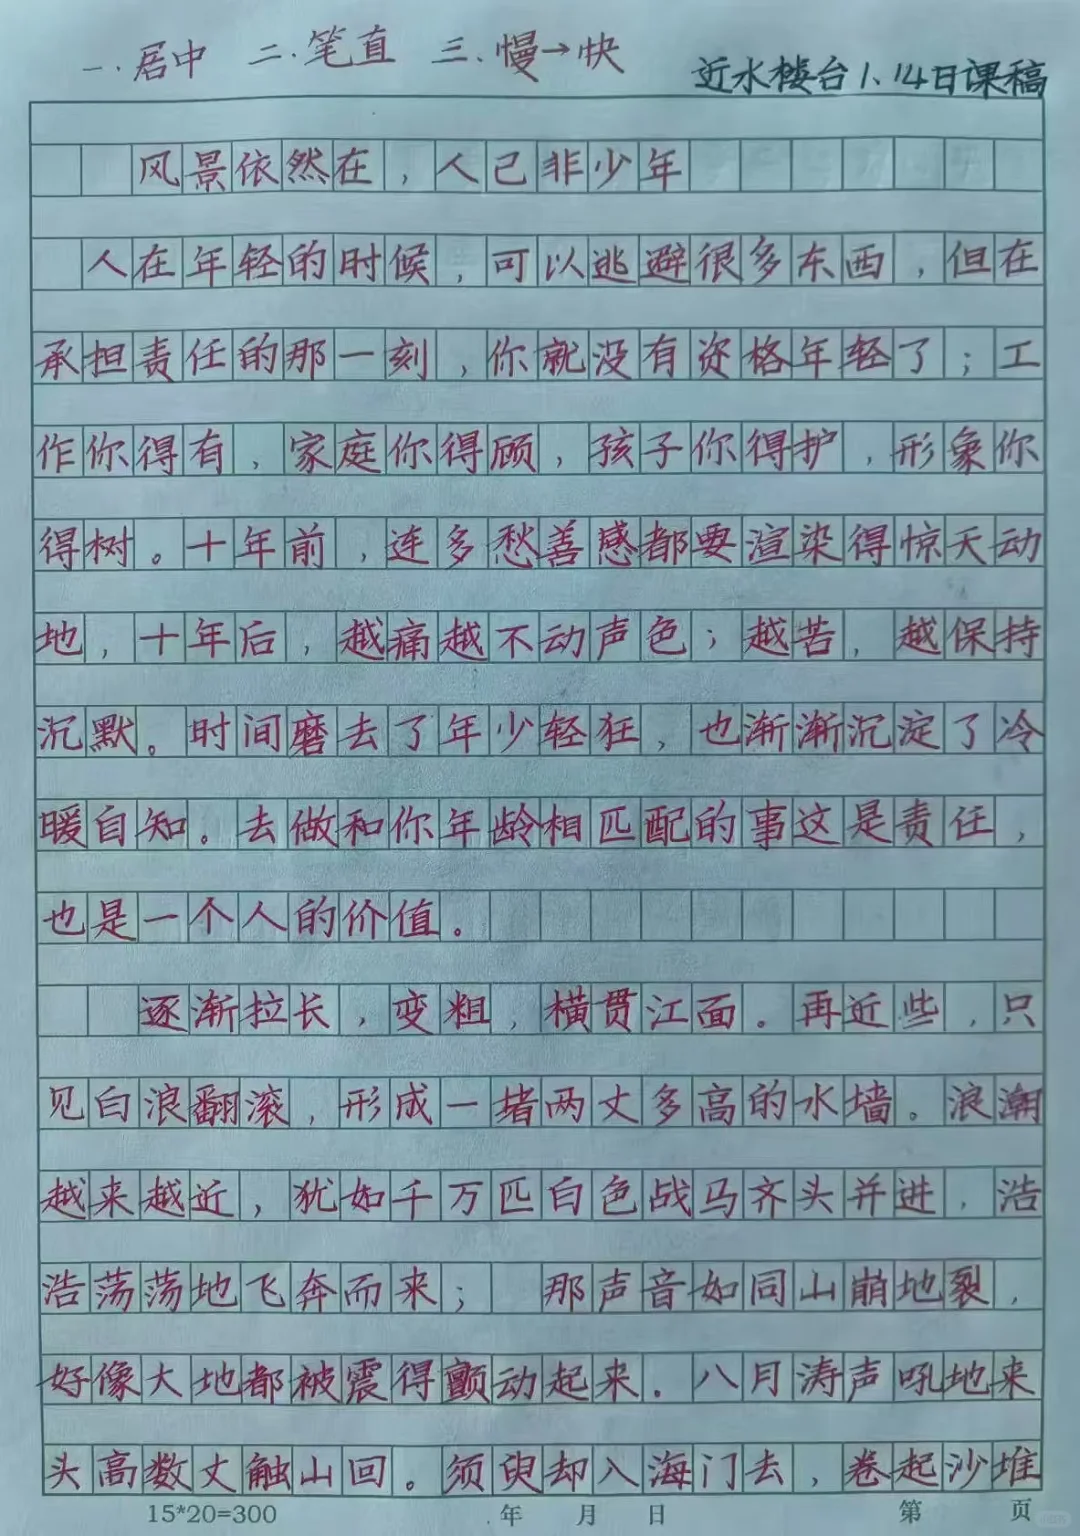 一.居中 二.笔直 三.慢→快
近水楼台1.14日课稿
风景依然在，人已非少年
人在年轻的时候，可以逃避很多东西，但在
承担责任的那一刻，你就没有资格年轻了；工
作你得有，家庭你得顾，孩子你得护，形象你
得树。十年前，连多愁善感都要渲染得惊天动
地，十年后，越痛越不动声色；越苦，越保持
沉默。时间磨去了年少轻狂，也渐渐沉淀了冷
暖自知。去做和你年龄相匹配的事这是责任，
也是一个人的价值。
逐渐拉长，变粗，横贯江面。再近些，只
见白浪翻滚，形成一堵两丈多高的水墙。浪潮
越来越近，犹如千万匹白色战马齐头并进，浩
浩荡荡地飞奔而来；那声音如同山崩地裂，
好像大地都被震得颤动起来。八月涛声吼地来
头高数丈触山回。须臾却入海门去，卷起沙堆
15*20=300 年 月 日 第 页